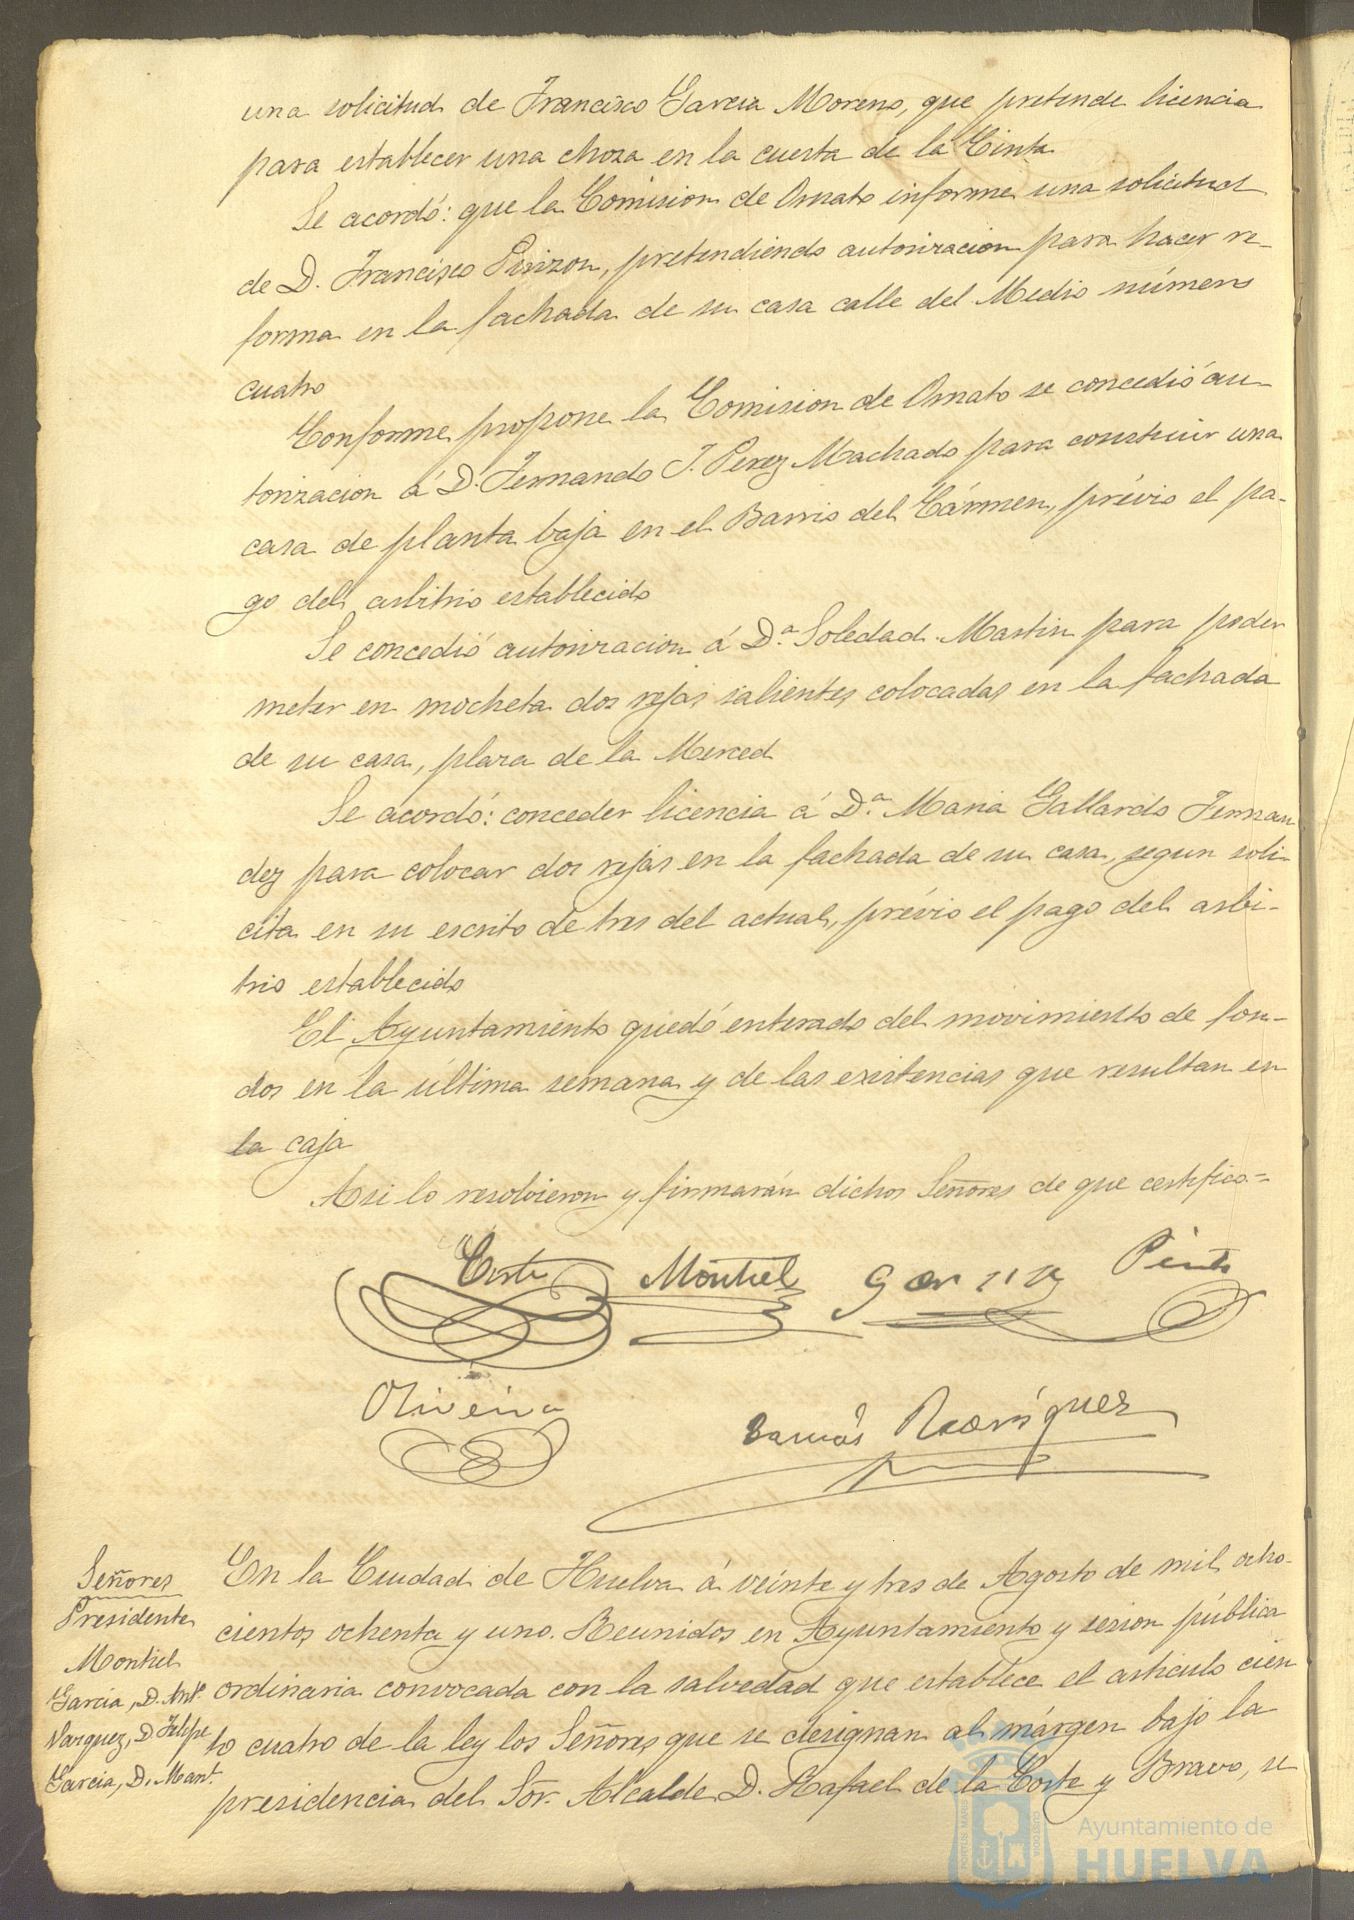 una solicitud de Francisco Garcia Moreno, que pretende licencia
para establecer una choza en la cuesta de la Cinta
Se acordó: que la Comision de Ornato informe una solicitud
de D. Francisco Pinzon, pretendiendo autorizacion para hacer re-
forma en la fachada de su casa calle del Medio número
cuatro
Conforme propone la Comision de Ornato se concedió au-
torizacion á D. Fernando J. Perez Machado para construir una
casa de planta baja en el Barrio del Cármen, prévio el pa-
go del arbitrio establecido
Se concedió autorizacion á D.ª Soledad Martin para poder
meter en mocheta dos rejas salientes colocadas en la fachada
de su casa, plaza de la Merced
Se acordó: conceder licencia á D.ª Maria Gallardo Fernan
dez para colocar dos rejas en la fachada de su casa, segun soli-
cita en su escrito de tres del actual, prévio el pago del arbi-
trio establecido
El Ayuntamiento quedó enterado del movimiento de fon-
dos en la última semana y de las existencias que resultan en
la caja
Asi lo resolvieron y firmarán dichos Señores de que certifico=
Corte Montiel Garcia Pinto
Oliveira
Rodriguez
Señores
Presidente
Montiel
Garcia, D. Ant.º
Vazquez, D. Felipe
Garcia, D. Man.l
En la Ciudad de Huelva á veinte y tres de Agosto de mil ocho-
cientos ochenta y uno. Reunidos en Ayuntamiento y sesion pública
ordinaria convocada con la salvedad que establece el articulo cien
to cuatro de la ley los Señores que se designan al márgen bajo la
presidencia del Sor. Alcalde D. Rafael de la Corte y Bravo, se
Ayuntamiento de
HUELVA